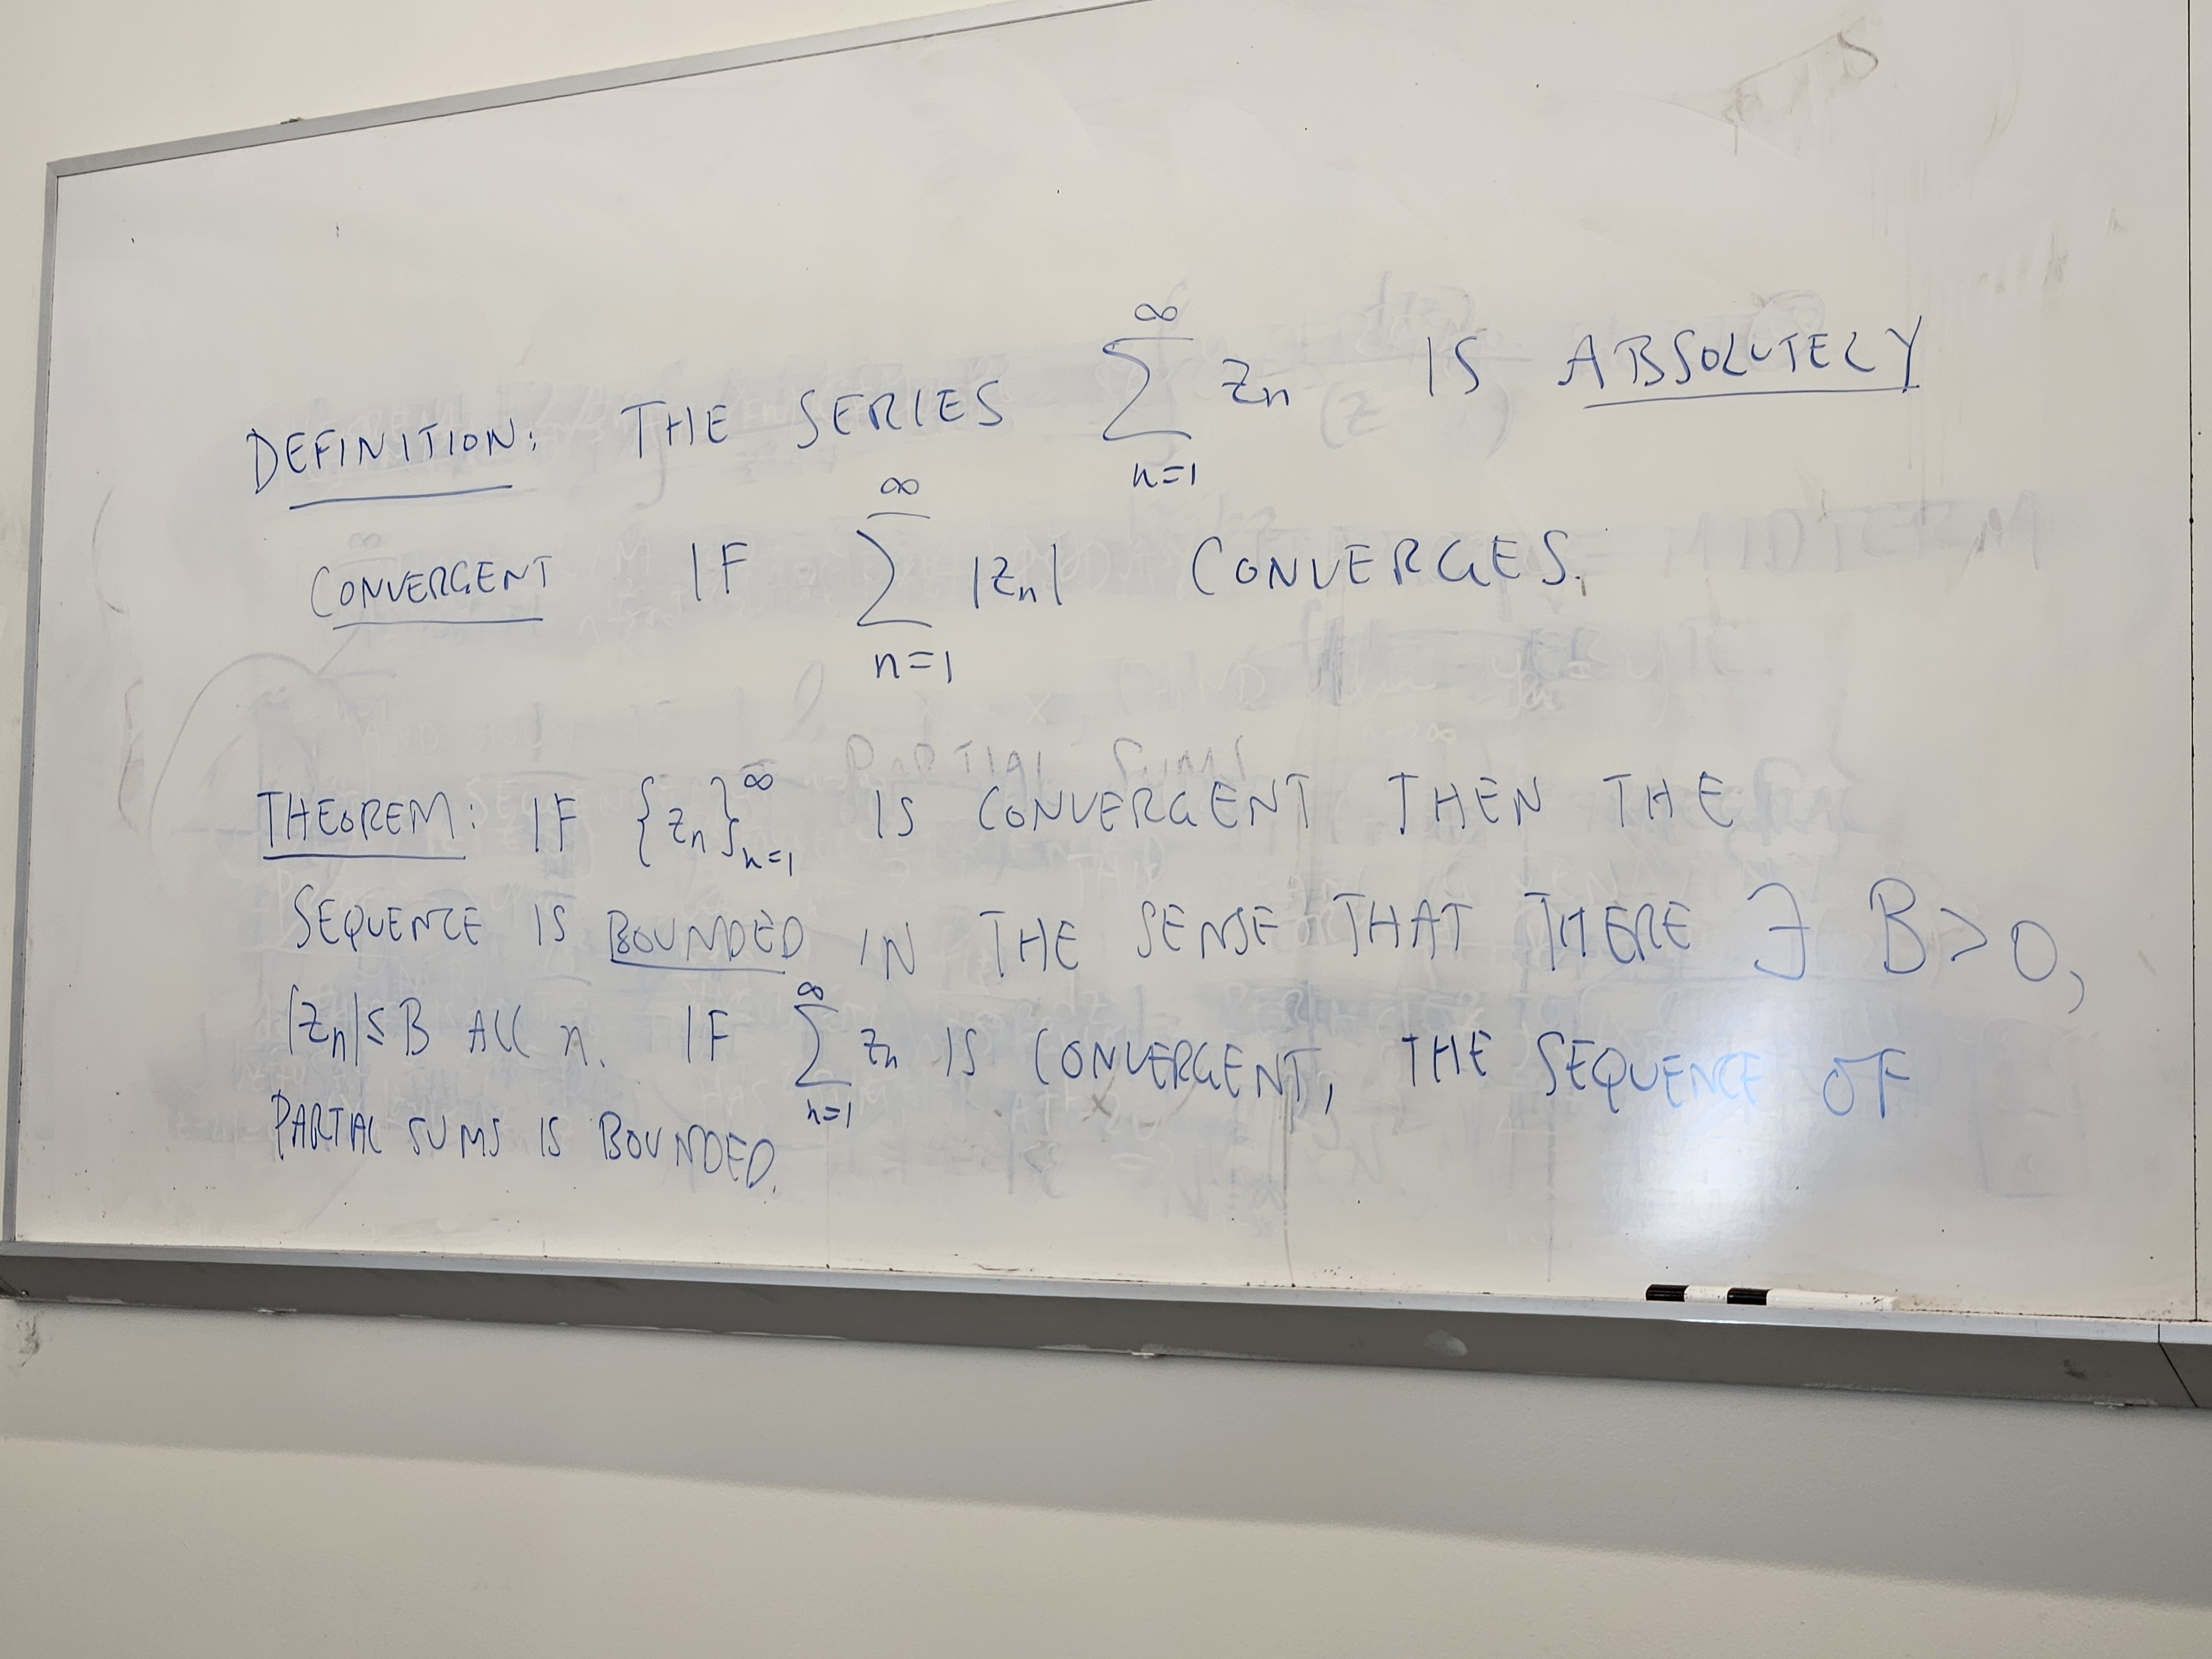 DEFINITION: THE SERIES ∑_{n=1}^{∞} z_n IS ABSOLUTELY
CONVERGENT IF ∑_{n=1}^{∞} |z_n| CONVERGES.
PARTIAL SUMS
THEOREM: IF {z_n}_{n=1}^{∞} IS CONVERGENT THEN THE
SEQUENCE IS BOUNDED IN THE SENSE THAT THERE ∃ B>0,
|z_n|≤B ALL n. IF ∑_{n=1}^{∞} z_n IS CONVERGENT, THE SEQUENCE OF
PARTIAL SUMS IS BOUNDED.